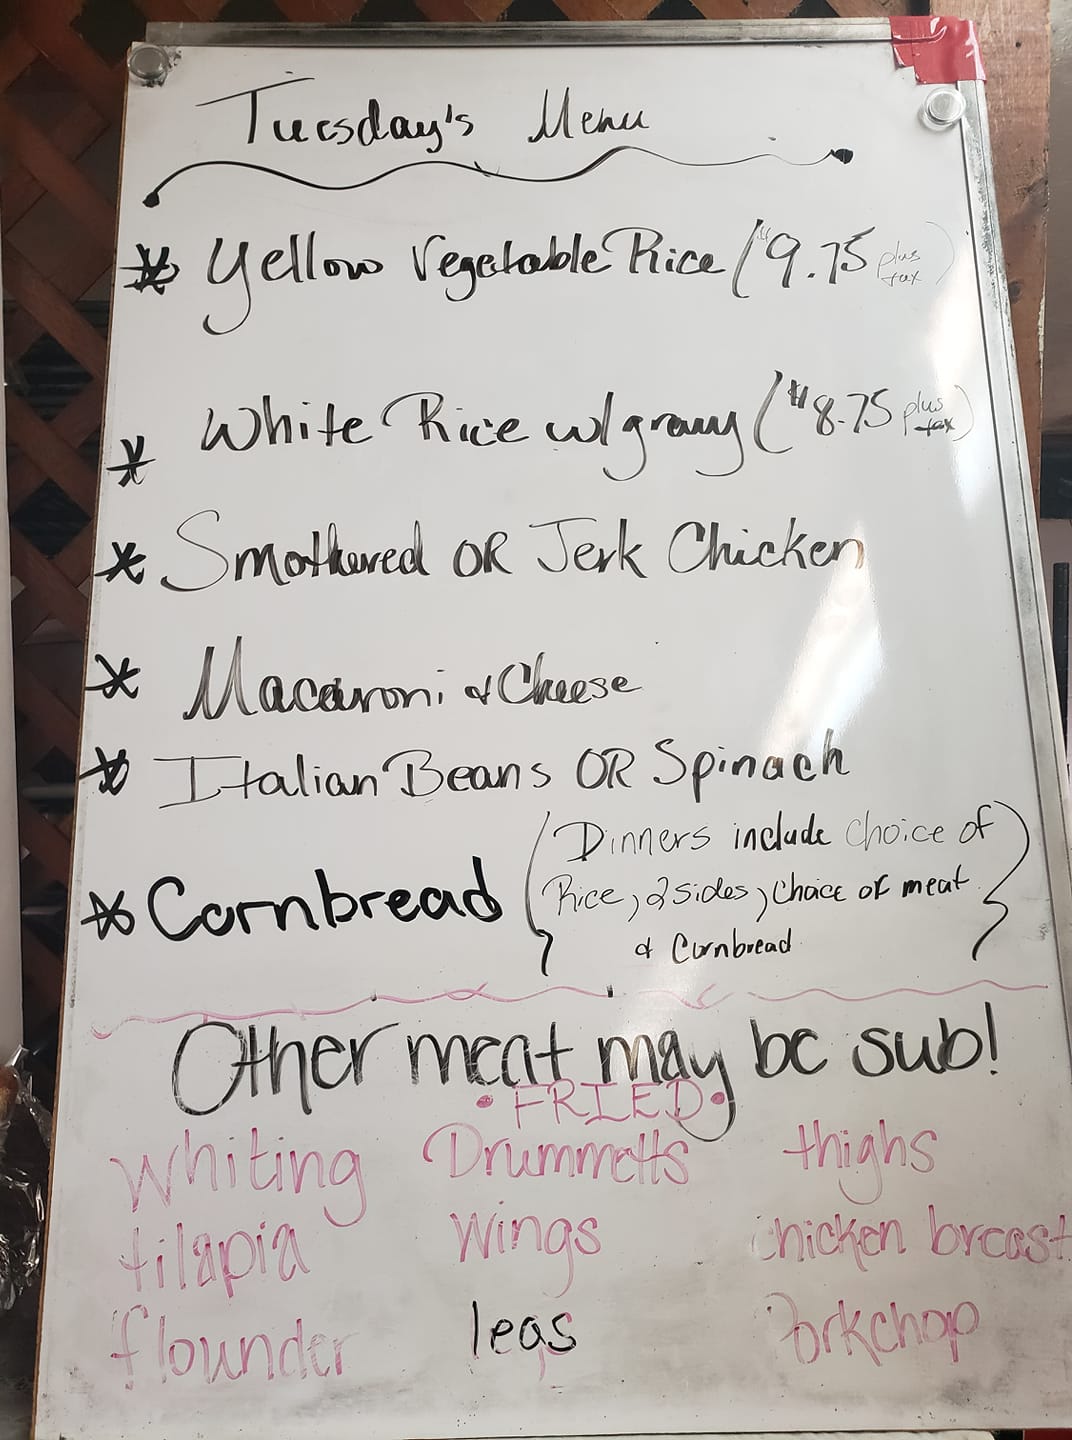 Tuesday's Menu
* Yellow Vegetable Rice ($9.75 plus tax)
* White Rice w/gravy ($8.75 plus tax)
* Smothered OR Jerk Chicken
* Macaroni & Cheese
* Italian Beans OR Spinach
* Cornbread
(Dinners include choice of
Rice, 2 sides, choice of meat
& Cornbread)
Other meat may be sub!
• FRIED •
Whiting Drummetts thighs
tilapia Wings chicken breast
flounder legs Porkchop